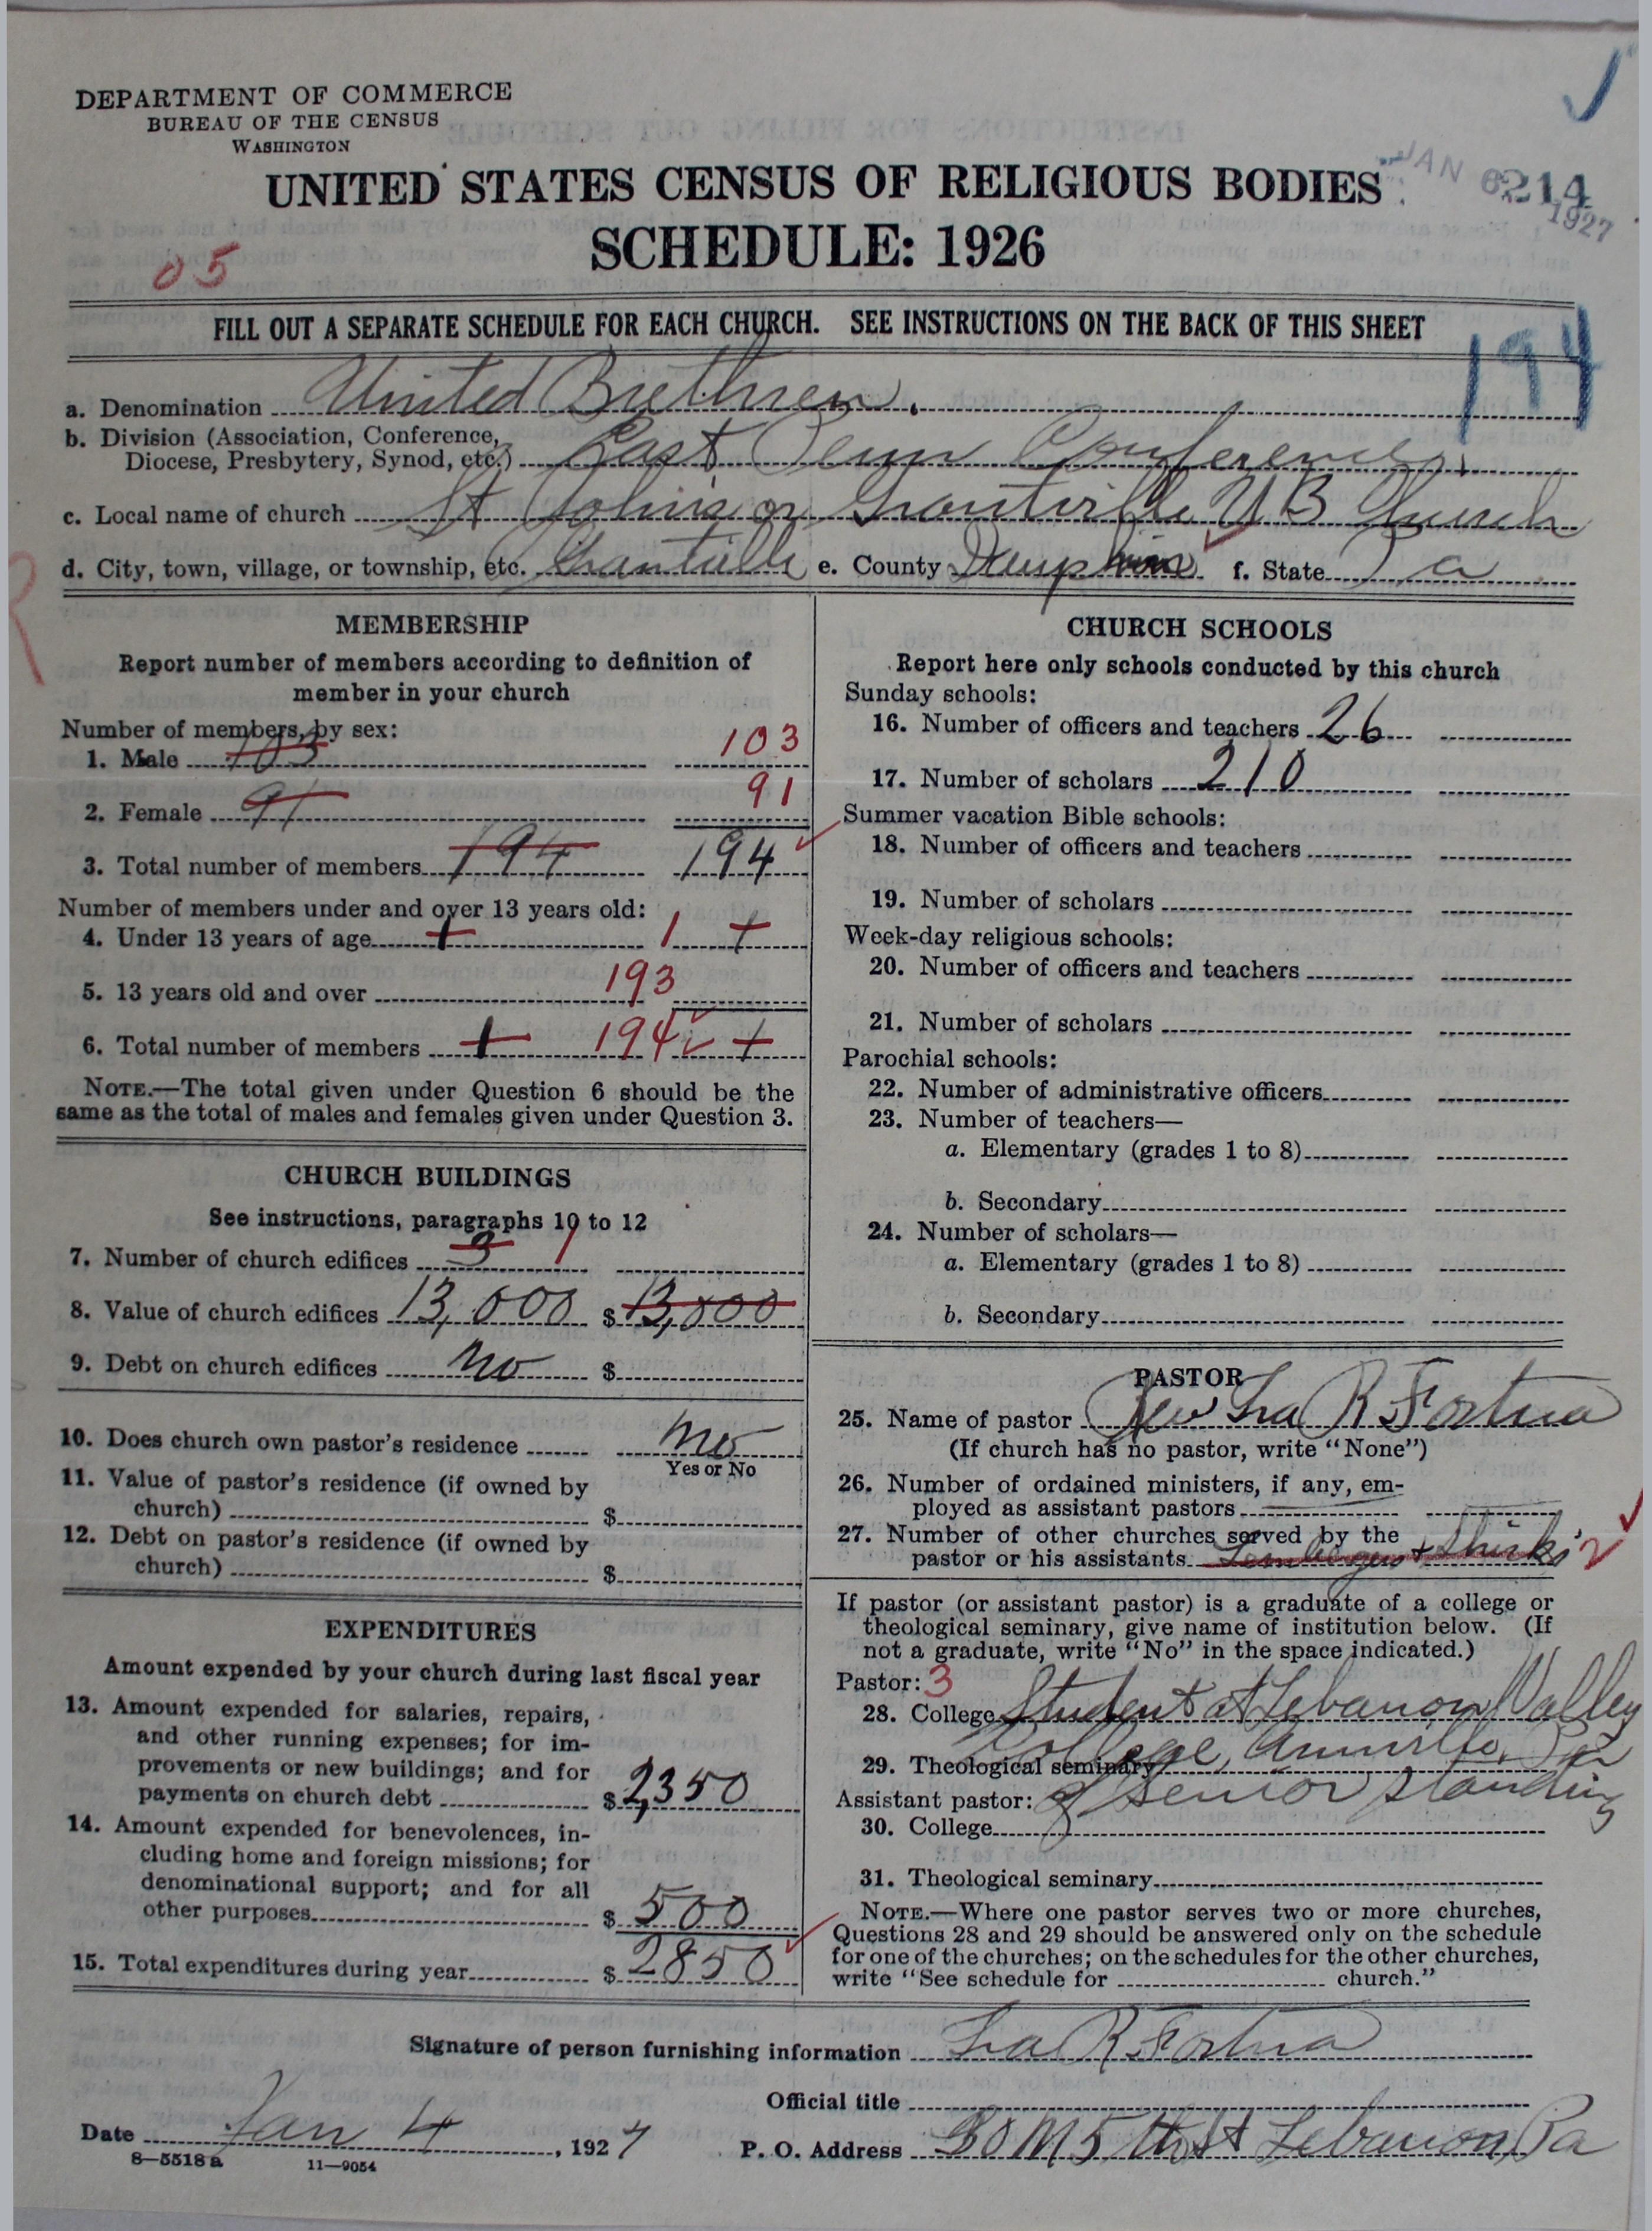 DEPARTMENT OF COMMERCE
BUREAU OF THE CENSUS
WASHINGTON
UNITED STATES CENSUS OF RELIGIOUS BODIES
JAN 6 1927
214
SCHEDULE: 1926
05
FILL OUT A SEPARATE SCHEDULE FOR EACH CHURCH. SEE INSTRUCTIONS ON THE BACK OF THIS SHEET
194
a. Denomination United Brethren.
b. Division (Association, Conference,
Diocese, Presbytery, Synod, etc.) East Penn Conference.
c. Local name of church St John's or Grantville U B Church
d. City, town, village, or township, etc. Grantville e. County Dauphin f. State Pa
MEMBERSHIP
Report number of members according to definition of
member in your church
Number of members, by sex:
1. Male 103 103
2. Female 91 91
3. Total number of members 194 194
Number of members under and over 13 years old:
4. Under 13 years of age 1 1 1
5. 13 years old and over 193
6. Total number of members 1 194 1
NOTE.—The total given under Question 6 should be the
same as the total of males and females given under Question 3.
CHURCH BUILDINGS
See instructions, paragraphs 10 to 12
7. Number of church edifices 3 1
8. Value of church edifices 13,000 $ 13,000
9. Debt on church edifices no $
10. Does church own pastor's residence no
Yes or No
11. Value of pastor's residence (if owned by
church) $
12. Debt on pastor's residence (if owned by
church) $
EXPENDITURES
Amount expended by your church during last fiscal year
13. Amount expended for salaries, repairs,
and other running expenses; for im-
provements or new buildings; and for
payments on church debt $ 2,350
14. Amount expended for benevolences, in-
cluding home and foreign missions; for
denominational support; and for all
other purposes $ 500
15. Total expenditures during year $ 2850
CHURCH SCHOOLS
Report here only schools conducted by this church
Sunday schools:
16. Number of officers and teachers 26
17. Number of scholars 210
Summer vacation Bible schools:
18. Number of officers and teachers
19. Number of scholars
Week-day religious schools:
20. Number of officers and teachers
21. Number of scholars
Parochial schools:
22. Number of administrative officers
23. Number of teachers—
a. Elementary (grades 1 to 8)
b. Secondary
24. Number of scholars—
a. Elementary (grades 1 to 8)
b. Secondary
PASTOR
25. Name of pastor Rev Ira R Fortna
(If church has no pastor, write "None")
26. Number of ordained ministers, if any, em-
ployed as assistant pastors
27. Number of other churches served by the
pastor or his assistants & Shirks 2
If pastor (or assistant pastor) is a graduate of a college or
theological seminary, give name of institution below. (If
not a graduate, write "No" in the space indicated.)
Pastor: 3
28. College Student at Lebanon Valley
College, Annville, Pa
29. Theological seminary
Assistant pastor: of senior standing
30. College
31. Theological seminary
NOTE.—Where one pastor serves two or more churches,
Questions 28 and 29 should be answered only on the schedule
for one of the churches; on the schedules for the other churches,
write "See schedule for church."
Signature of person furnishing information Ira R Fortna
Official title
Date Jan 4, 1927 P. O. Address 5th St Lebanon, Pa
8—5518 a 11—9054